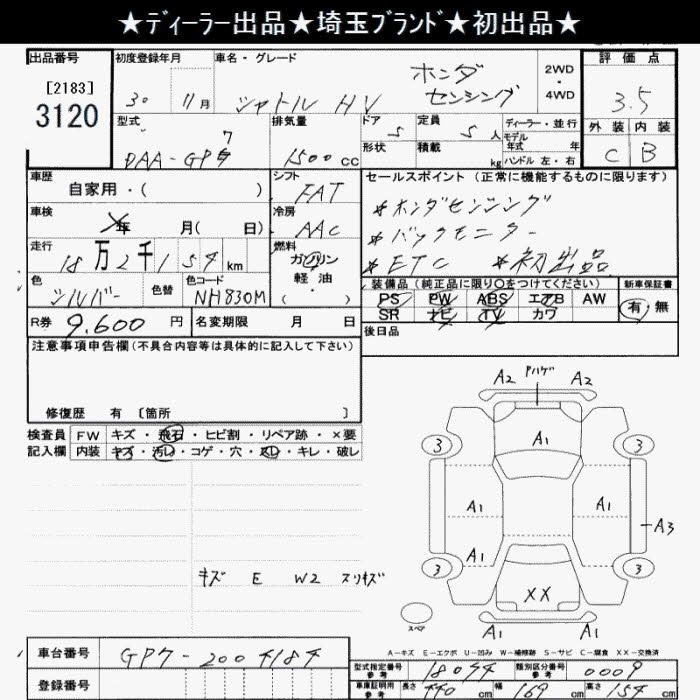 ★ディーラー出品★埼玉ブランド★初出品★
出品番号 初度登録年月 車名・グレード 評価点
[2183]
3120
30 11月 シャトル HV ホンダセンシング 2WD・4WD 3.5
型式 排気量 ドア 定員 ディーラー・並行 外装 内装
DAA-GP 7 1500cc 5 5人 モデル年式 年 C B
形状 積載 kg ハンドル 左・右
車歴 シフト セールスポイント (正常に機能するものに限ります)
自家用・( ) FAT
車検 冷房 ＊ホンダセンシング
年 月( 日) AAC ＊バックモニター
走行 燃料 ＊ETC ＊初出品
18万2千154km ガソリン
軽油
・( )
色 色替 色コード 装備品 (純正品に限り○をつけてください) 新車保証書
シルバー NH830M PS PW ABS エアB AW 有・無
SR ナビ TV カワ
R券 9.600円 名変期限 月 日 後日品
注意事項申告欄(不具合内容等は具体的に記入して下さい)
修復歴 有 [箇所 ]
検査員 FW キズ・飛石・ヒビ割・リペア跡・×要
記入欄 内装 キズ・汚レ・コゲ・穴・スレ・キレ・破レ
A2 Pハゲ A2
A1
3 3
A1 A1
A3
A1
3 3
XX
A1 A1
スペア
キズ E W2 スリキズ
A-キズ E-エクボ U-凹み W-補修跡 S-サビ C-腐食 XX-交換済
車台番号 GP7-2004184
登録番号
型式指定番号 参考 18054 類別区分番号 参考 0009
車庫証明用 参考 長さ 440cm 幅 169cm 高さ 154cm